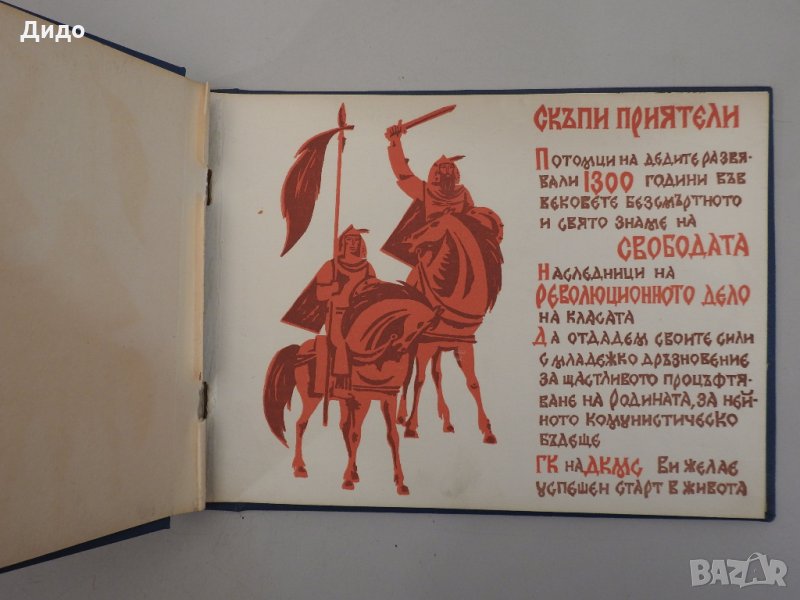 Дидо
СКЪПИ ПРИЯТЕЛИ
ПОТОМЦИ НА ДЕДИТЕ РАЗВЯ-
ВАЛИ 1300 ГОДИНИ ВЪВ
ВЕКОВЕТЕ БЕЗСМЪРТНОТО
И СВЯТО ЗНАМЕ НА
СВОБОДАТА
НАСЛЕДНИЦИ НА
РЕВОЛЮЦИОННОТО ДЕЛО
НА КЛАСАТА
ДА ОТДАДЕМ СВОИТЕ СИЛИ
С МЛАДЕЖКО ДРЪЗНОВЕНИЕ
ЗА ЩАСТЛИВОТО ПРОЦЪФТЯ-
ВАНЕ НА РОДИНАТА, ЗА НЕЙ-
НОТО КОМУНИСТИЧЕСКО
БЪДЕЩЕ
ГК НА ДКМС ВИ ЖЕЛАЕ
УСПЕШЕН СТАРТ В ЖИВОТА
BAZAR